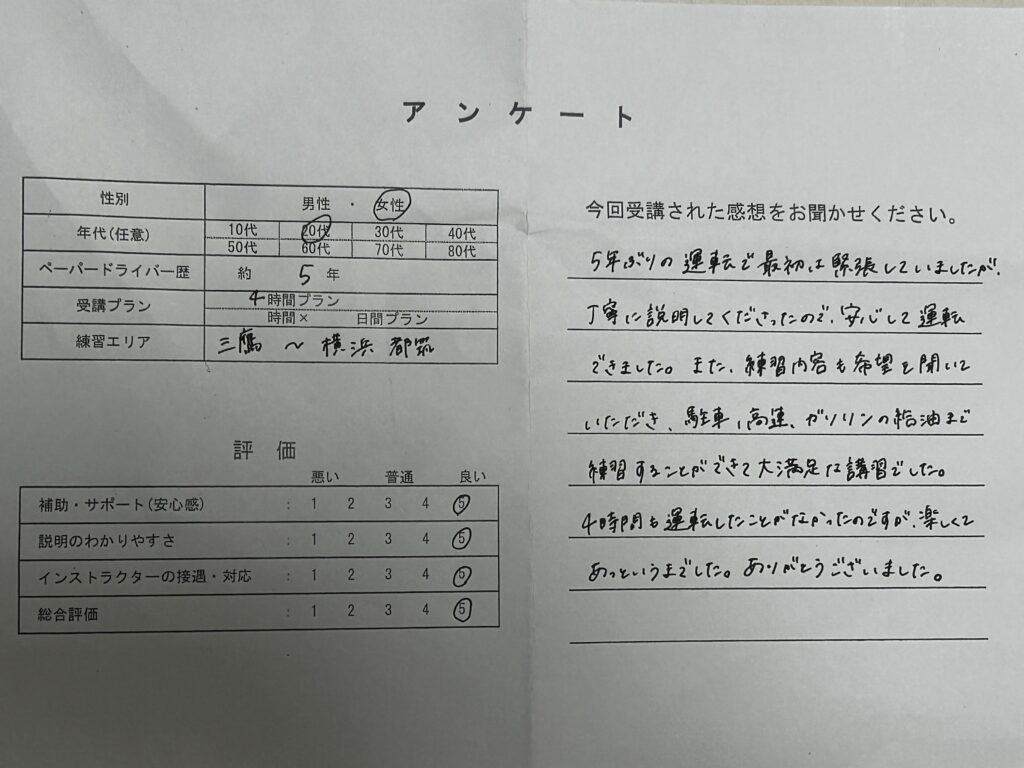 アンケート
性別 男性 ・ 女性
年代(任意) 10代 20代 30代 40代
50代 60代 70代 80代
ペーパードライバー歴 約 5 年
受講プラン 4時間プラン
時間× 日間プラン
練習エリア 三鷹 〜 横浜 都筑
評価
悪い 普通 良い
補助・サポート(安心感) : 1 2 3 4 5
説明のわかりやすさ : 1 2 3 4 5
インストラクターの接遇・対応 : 1 2 3 4 5
総合評価 : 1 2 3 4 5
今回受講された感想をお聞かせください。
5年ぶりの運転で最初は緊張していましたが、
丁寧に説明してくださったので、安心して運転
できました。また、練習内容も希望を聞いて
いただき、駐車、高速、ガソリンの給油まで
練習することができて大満足な講習でした。
4時間も運転したことがなかったのですが、楽しくて
あっというまでした。ありがとうございました。